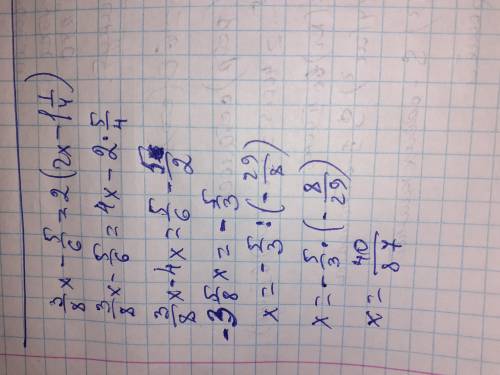 3/8 x - 5/6 = 2(2x - 1 1/4)
3/8 x - 5/6 = 4x - 2 · 5/4
3/8 x - 4x = 5/6 - 5/2
-3 5/8 x = - 5/3
x = - 5/3 : (- 29/8)
x = - 5/3 · (- 8/29)
x = 40/87